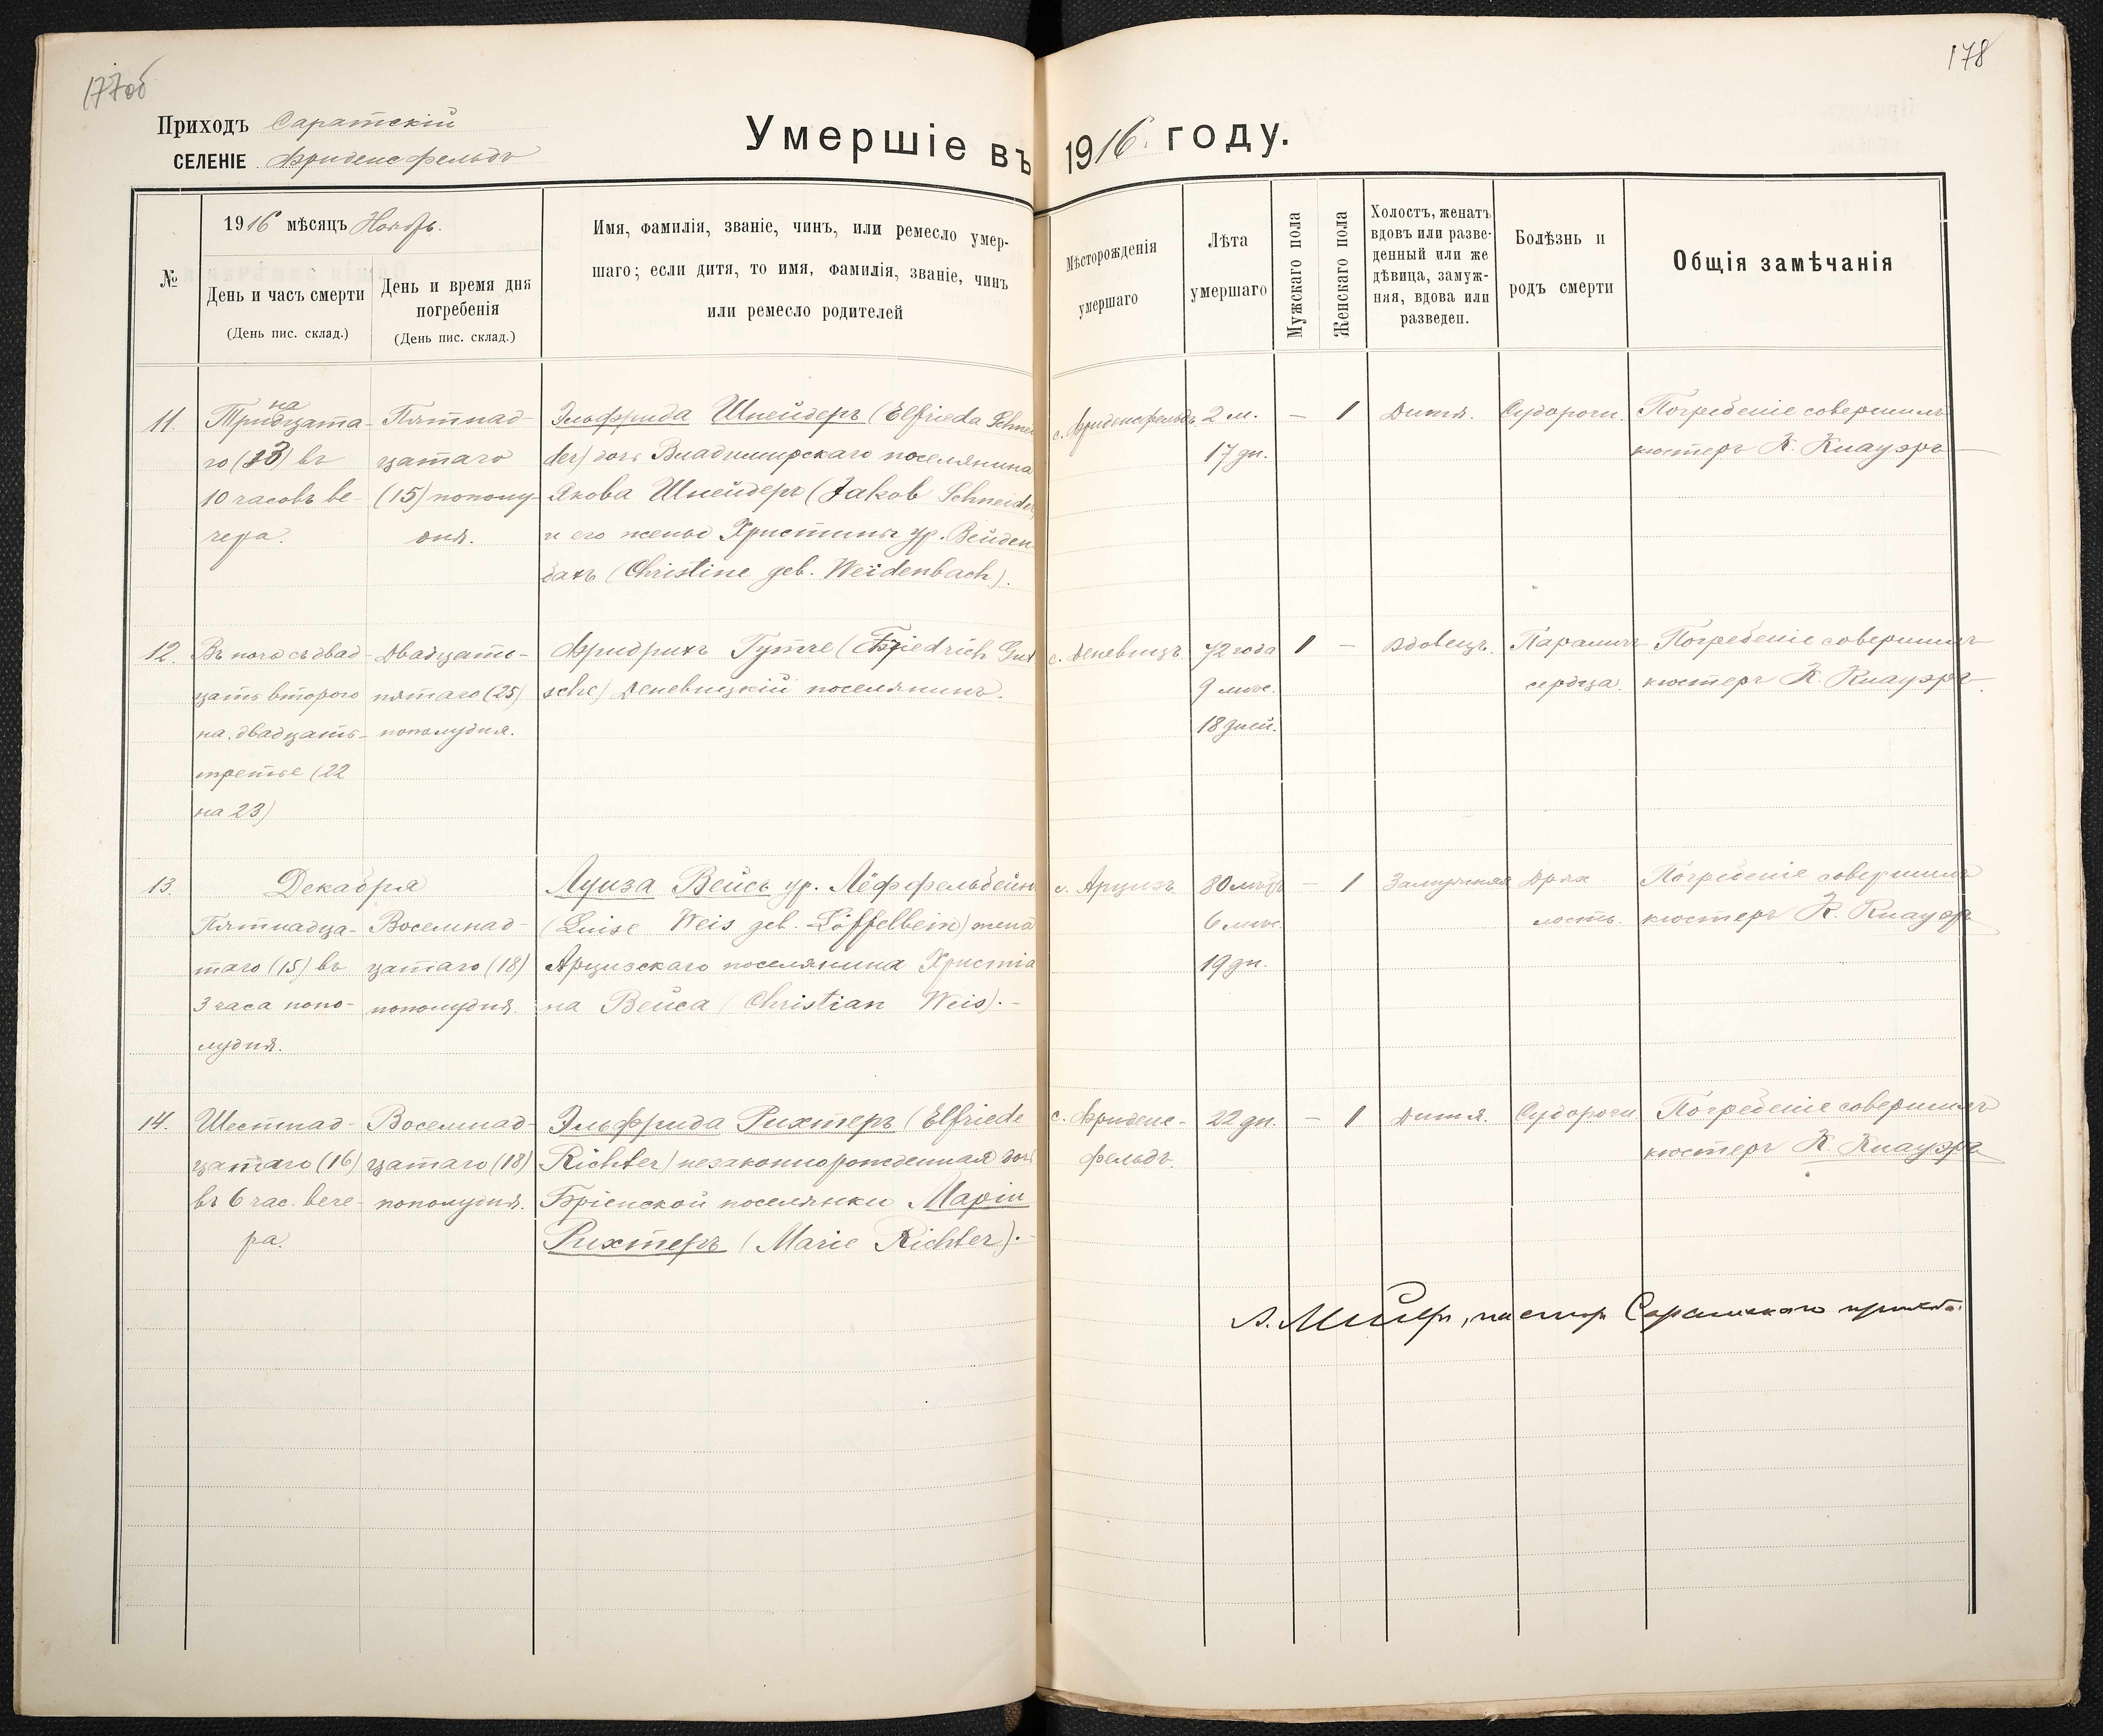 177об
178
Приходъ Саратскій
СЕЛЕНІЕ Фриденсфельдъ
Умершіе въ 1916 году.
№
1916 мѣсяцъ Ноябрь.
День и часъ смерти
(День пис. склад.)
День и время дня
погребенія
(День пис. склад.)
Имя, фамилія, званіе, чинъ, или ремесло умер-
шаго; если дитя, то имя, фамилія, званіе, чинъ
или ремесло родителей
Мѣсторожденія
умершаго
Лѣта
умершаго
Мужскаго пола
Женскаго пола
Холостъ, женатъ
вдовъ или разве-
денный или же
дѣвица, замуж-
няя, вдова или
разведен.
Болѣзнь и
родъ смерти
Общія замѣчанія
11.
на
Тридцата-
го (13) въ
10 часовъ ве-
чера.
Пятнад-
цатаго
(15) пополу-
дня.
Эльфрида Шнейдеръ (Elfrieda Schnei
der) дочь Владимирскаго поселянина
Якова Шнейдеръ (Jakob Schneider
и его жены Христины ур. Вейден
бахъ (Christine geb. Weidenbach).
с. Фриденсфельдъ
2 м.
17 дн.
—
1
Дитя.
Судороги.
Погребеніе совершилъ
кюстеръ К. Кнауэръ
12.
Въ ночь съ двад
цать второго
на двадцать-
третье (22
на 23)
Двадцать-
пятаго (25)
пополудня.
Фридрихъ Гутче (Friedrich Gut
sche) Деневицкій поселянинъ.
с. Деневицъ
72 года
9 мѣс.
18 дней.
1
—
Вдовецъ.
Параличъ
сердца.
Погребеніе совершилъ
кюстеръ К. Кнауэръ.
13.
Декабря
Пятнадца-
таго (15) въ
3 часа попо-
лудня.
Восемнад-
цатаго (18)
пополудня.
Луиза Вейсъ ур. Лёффельбейн
(Luise Weis geb. Löffelbein) жена
Арцизскаго поселянина Христіа
на Вейса (Christian Weis). -
с. Арцизъ
80 лѣтъ
6 мѣс.
19 дн.
—
1
Замужняя
Дрях-
лость.
Погребеніе совершилъ
кюстеръ К. Кнауэръ
14.
Шестнад-
цатаго (16)
въ 6 час. вече-
ра.
Восемнад-
цатаго (18)
пополудня.
Эльфрида Рихтеръ (Elfriede
Richter) незаконнорожденная дочь
Бріенской поселянки Маріи
Рихтеръ (Marie Richter). -
с. Фриденс-
фельдъ.
22 дн.
—
1
Дитя.
Судороги
Погребеніе совершилъ
кюстеръ К. Кнауэръ
А. Мейеръ, пасторъ Саратскаго прихода.